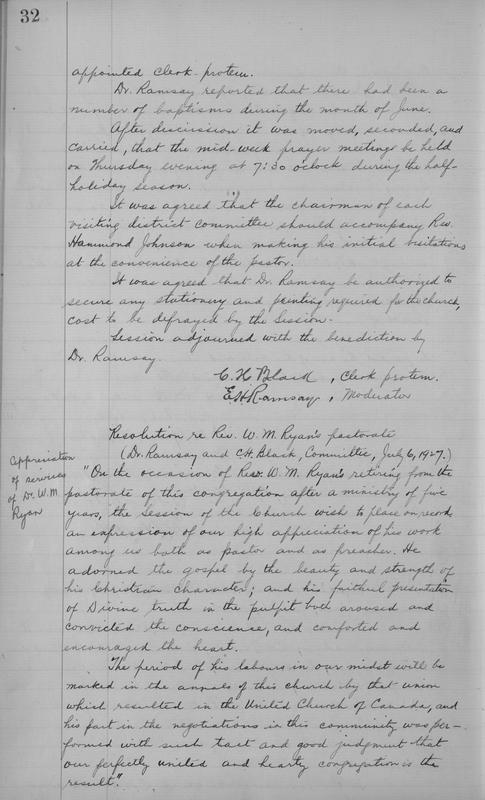 32
appointed Clerk protem.
Dr. Ramsay reported that there had been a
number of baptisms during the month of June.
After discussion it was moved, seconded, and
carried, that the mid-week prayer meetings be held
on Thursday evening at 7:30 o'clock during the half-
holiday season.
It was agreed that the chairman of each
visiting district committee should accompany Rev.
Hammond Johnson when making his initial visitations
at the convenience of the pastor.
It was agreed that Dr. Ramsay be authorized to
secure any stationery and printing required for the church,
cost to be defrayed by the Session.
Session adjourned with the benediction by
Dr. Ramsay.
C. H. Black, Clerk protem.
E. H. Ramsay, Moderator
Resolution re Rev. W. M. Ryan's pastorate
(Dr. Ramsay and C.H. Black, Committee, July 6, 1927.)
Appreciation
of services
of Dr. W. M.
Ryan
"On the occasion of Rev. W. M. Ryan's retiring from the
pastorate of this congregation after a ministry of five
years, the Session of the Church wish to place on record
an expression of our high appreciation of his work
among us both as pastor and as preacher. He
adorned the gospel by the beauty and strength of
his Christian character; and his faithful presentation
of Divine truth in the pulpit both aroused and
convicted the conscience, and comforted and
encouraged the heart.
The period of his labours in our midst will be
marked in the annals of this church by that union
which resulted in the United Church of Canada, and
his part in the negotiations in this community was per-
formed with such tact and good judgment that
our perfectly united and hearty congregation is the
result."